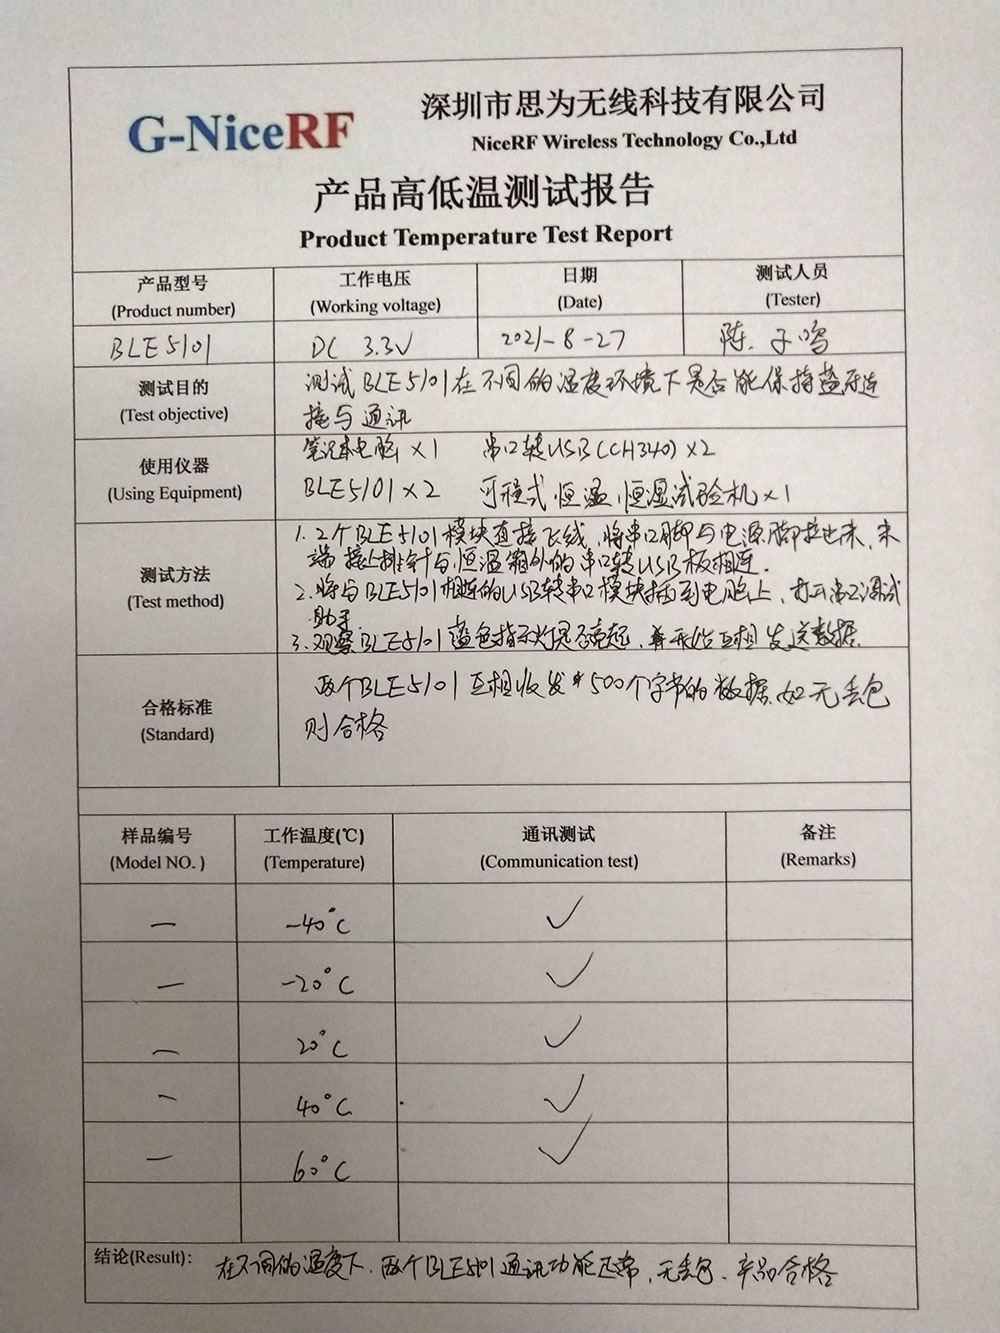 G-NiceRF
深圳市思为无线科技有限公司
NiceRF Wireless Technology Co.,Ltd
产品高低温测试报告
Product Temperature Test Report
产品型号 工作电压 日期 测试人员
(Product number) (Working voltage) (Date) (Tester)
BLE5101 DC 3.3V 2021-8-27 陈.子鸣
测试目的
(Test objective)
测试BLE5101在不同的温度环境下是否能保持蓝牙连
接与通讯
使用仪器
(Using Equipment)
笔记本电脑×1 串口转USB(CH340)×2
BLE5101×2 可程式恒温恒湿试验机×1
测试方法
(Test method)
1.2个BLE5101模块直接飞线,将串口脚与电源脚拉出来,末
端接上排针与恒温箱外的串口转USB板相连.
2.将与BLE5101相连的USB转串口模块插到电脑上,打开串口调试
助手
3.观察BLE5101蓝色指示灯是否亮起,并开始互相发送数据.
合格标准
(Standard)
两个BLE5101互相收发500个字节的数据,如无丢包
则合格
样品编号 工作温度(℃) 通讯测试 备注
(Model NO. ) (Temperature) (Communication test) (Remarks)
— -40°C ✓
— -20°C ✓
— 20°C ✓
— 40°C ✓
— 60°C ✓
结论(Result): 在不同的温度下,两个BLE5101通讯功能正常,无丢包.产品合格